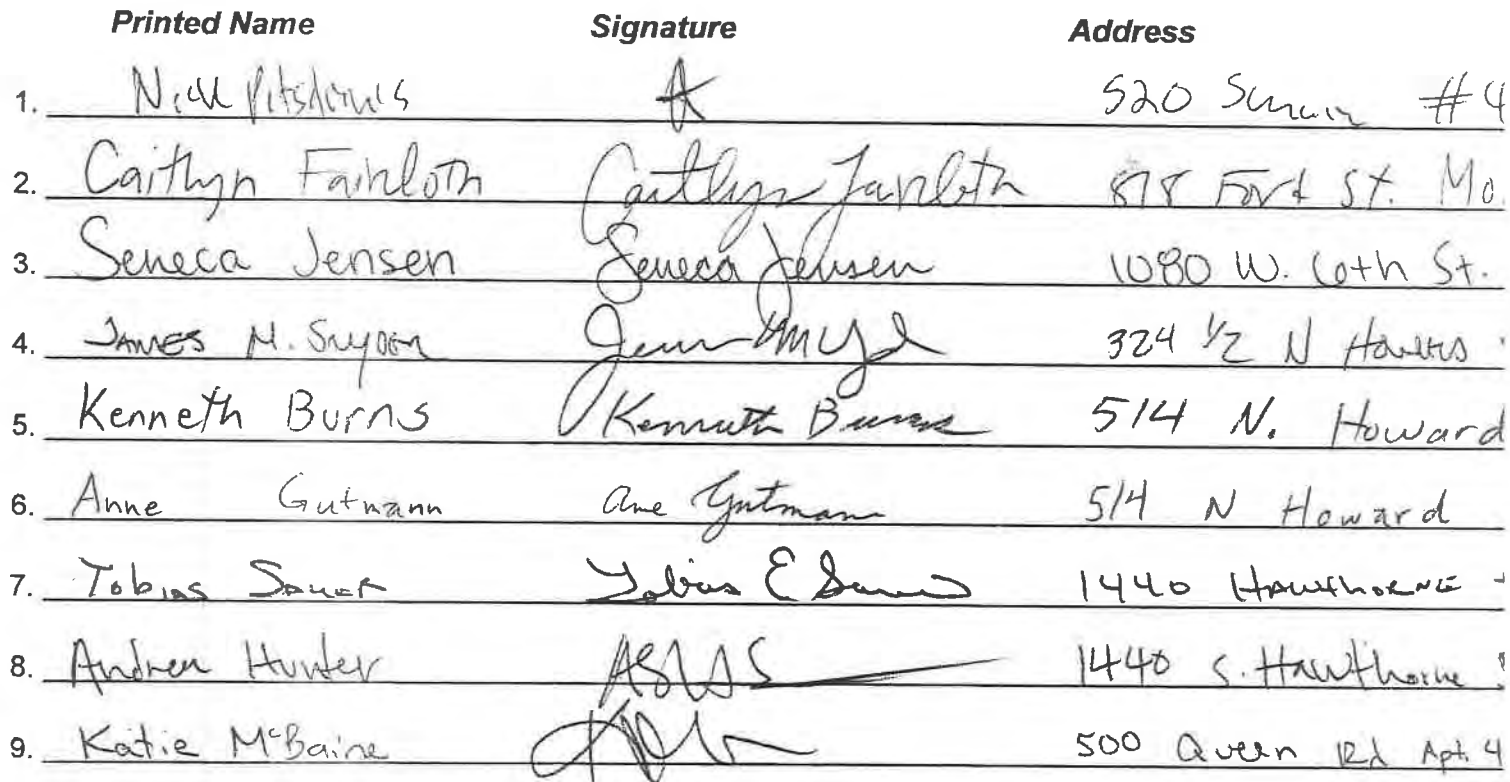 Printed Name Signature Address
1. Nick #4 520
2. Caitlyn Faircloth Caitlyn Faircloth 878 Fort St. Mo.
3. Seneca Jensen Seneca Jensen 1080 W. 6th St.
4. James M. Snyder 324 1/2 N
5. Kenneth Burns Kenneth Burns 514 N. Howard
6. Anne Gutmann Anne Gutmann 514 N Howard
7. Tobias Sauer Tobias E Sauer 1440 Hawthorne
8. Andrea Hunter 1440 S. Hawthorne
9. Katie McBaine 500 Queen Rd Apt. 4